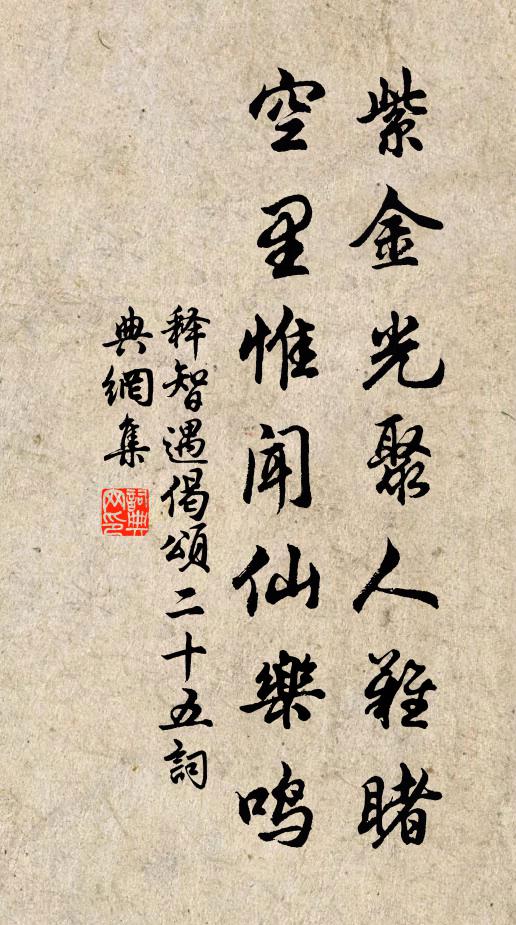 紫金光聚人難睹
空里惟闻仙樂鸣
释智遇偈颂二十五詞
典網集
詞典网印